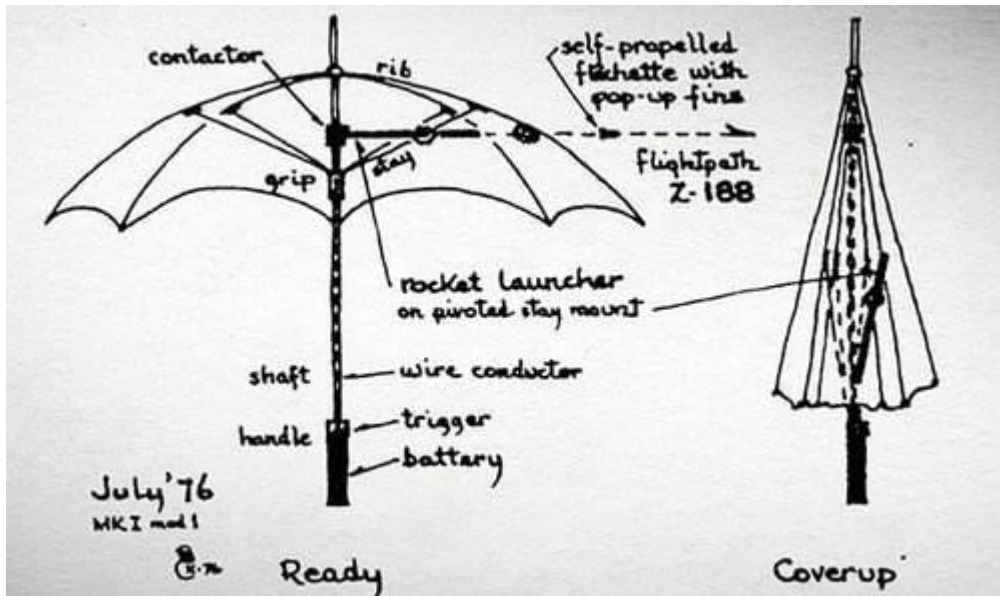 contactor
rib
self-propelled
flechette with
pop-up fins
stay
grip
flightpath
Z-188
rocket launcher
on pivoted stay mount
shaft
wire conductor
trigger
handle
battery
July '76
MK I mod 1
Ready
Coverup